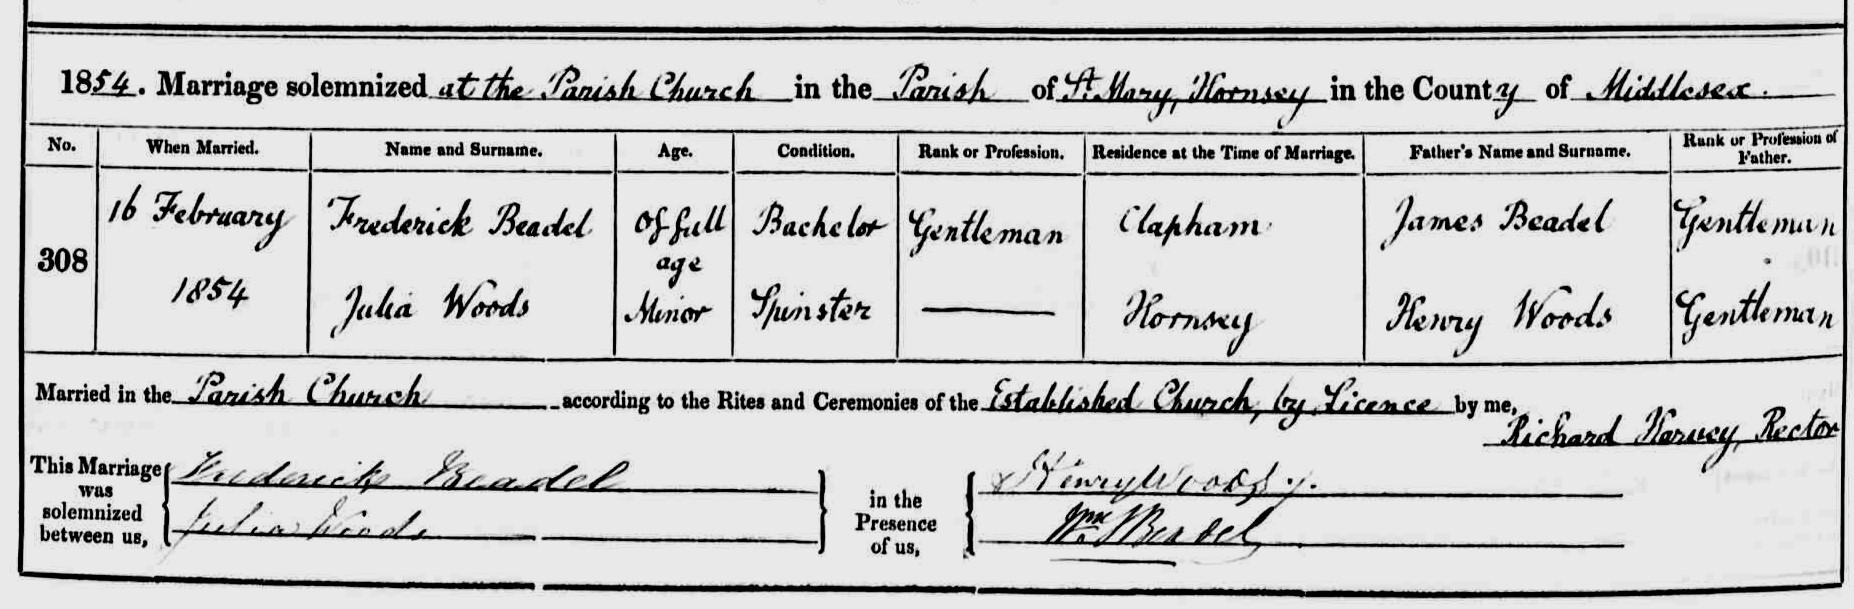 1854. Marriage solemnized at the Parish Church in the Parish of St. Mary, Hornsey in the County of Middlesex.
No. When Married. Name and Surname. Age. Condition. Rank or Profession. Residence at the Time of Marriage. Father's Name and Surname. Rank or Profession of Father.
308 16 February 1854 Frederick Beadel Of full age Bachelor Gentleman Clapham James Beadel Gentleman
Julia Woods Minor Spinster —— Hornsey Henry Woods Gentleman
Married in the Parish Church according to the Rites and Ceremonies of the Established Church, by Licence by me,
Richard Harvey, Rector
This Marriage was solemnized between us, Frederick Beadel
Julia Woods
in the Presence of us, Henry Woods
Wm. Beadel